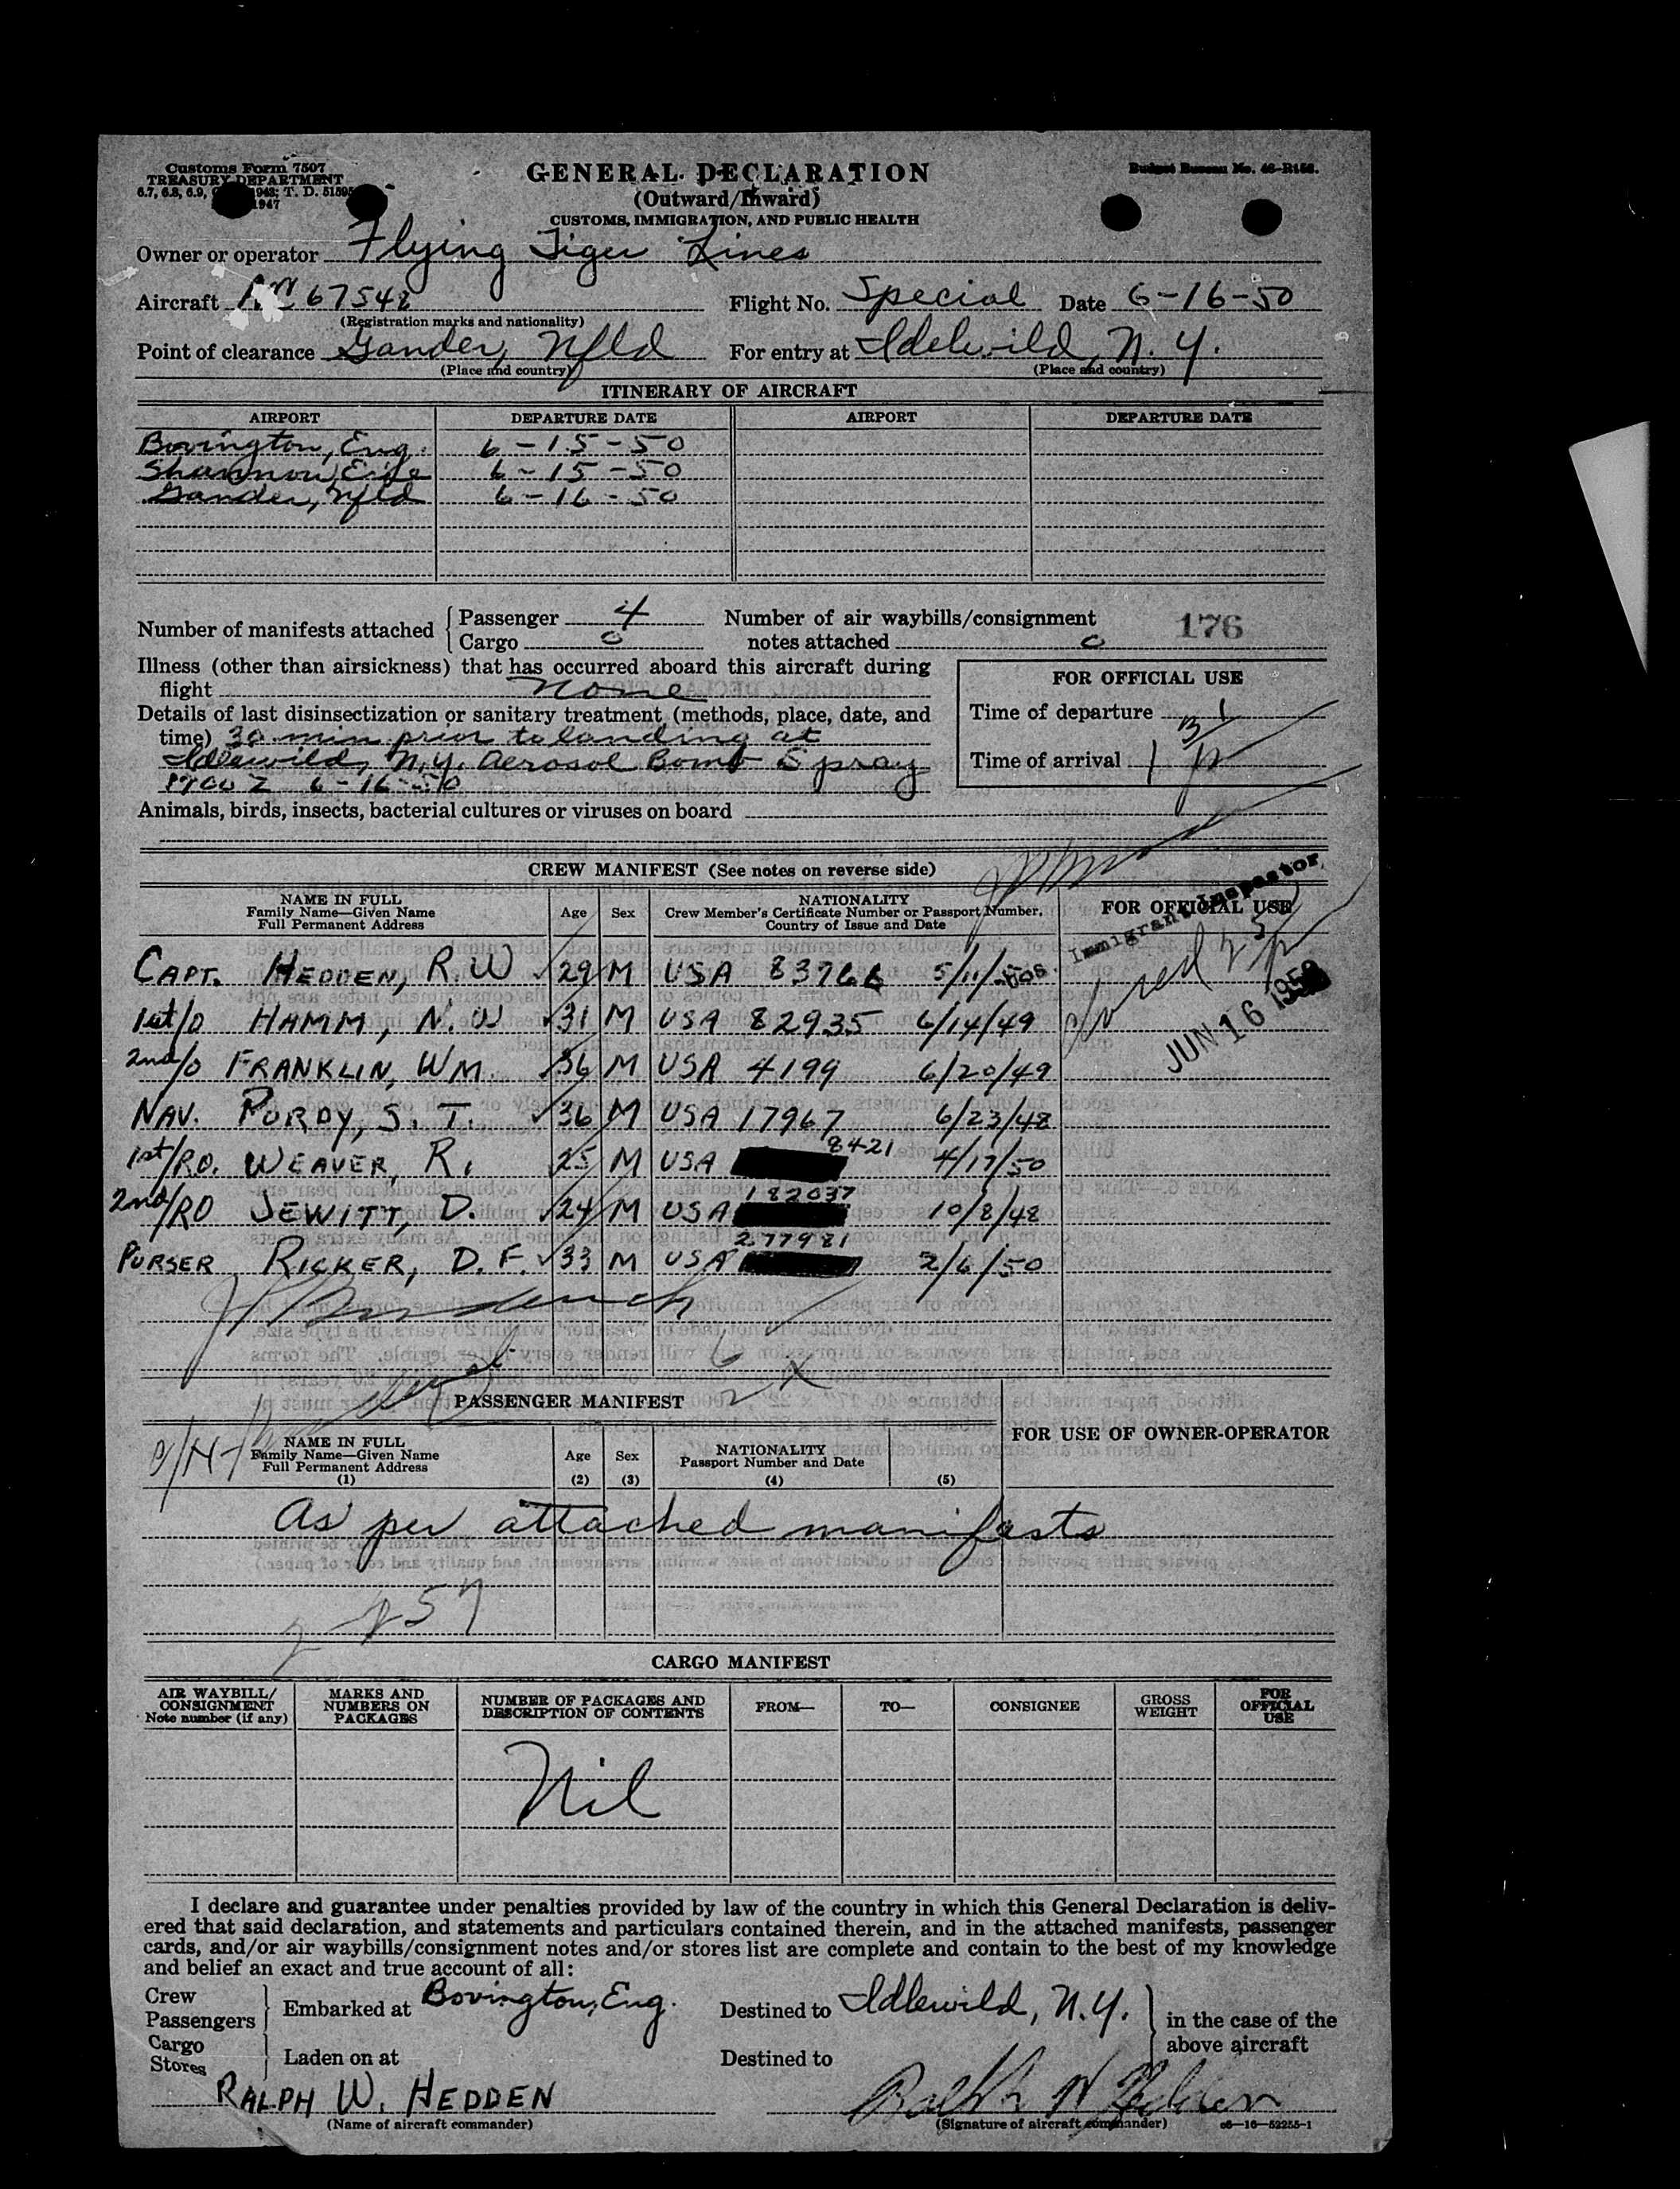 Customs Form 7507
TREASURY DEPARTMENT
6.7, 6.8, 6.9, 1948; T. D. 51595
1947
GENERAL DECLARATION
(Outward/Inward)
CUSTOMS, IMMIGRATION, AND PUBLIC HEALTH
Budget Bureau No. 48-R156.
Owner or operator Flying Tiger Lines
Aircraft 67548 Flight No. Special Date 6-16-50
(Registration marks and nationality)
Point of clearance Gander, Nfld For entry at Idlewild, N.Y.
(Place and country) (Place and country)
ITINERARY OF AIRCRAFT
AIRPORT DEPARTURE DATE AIRPORT DEPARTURE DATE
Bovington, Eng. 6-15-50
Shannon, Eire 6-15-50
Gander, Nfld 6-16-50
Number of manifests attached Passenger 4 Number of air waybills/consignment 176
Cargo 0 notes attached 0
Illness (other than airsickness) that has occurred aboard this aircraft during
flight none
FOR OFFICIAL USE
Details of last disinsectization or sanitary treatment (methods, place, date, and
time) 30 min prior to landing at
Idlewild, N.Y. Aerosol Bomb Spray
1700 Z 6-16-50
Time of departure
Time of arrival
Animals, birds, insects, bacterial cultures or viruses on board
CREW MANIFEST (See notes on reverse side)
NAME IN FULL
Family Name—Given Name
Full Permanent Address
Age Sex
NATIONALITY
Crew Member's Certificate Number or Passport Number,
Country of Issue and Date
FOR OFFICIAL USE
Immigrant Inspector
CAPT. HEDDEN, R.W 29 M USA 83766 5/11/50
1st/O HAMM, N.W 31 M USA 82935 6/14/49
JUN 16 1950
2nd/O FRANKLIN, WM. 36 M USA 4199 6/20/49
NAV. PURDY, S. T. 36 M USA 17967 6/23/48
1st/RO. WEAVER, R. 25 M USA 8421 4/17/50
2nd/RO JEWITT, D. 24 M USA 182037 10/8/48
PURSER RICKER, D. F. 33 M USA 277981 2/6/50
PASSENGER MANIFEST
NAME IN FULL
Family Name—Given Name
Full Permanent Address
(1)
Age
(2)
Sex
(3)
NATIONALITY
Passport Number and Date
(4)
(5)
FOR USE OF OWNER-OPERATOR
As per attached manifests
57
CARGO MANIFEST
AIR WAYBILL/
CONSIGNMENT
Note number (if any)
MARKS AND
NUMBERS ON
PACKAGES
NUMBER OF PACKAGES AND
DESCRIPTION OF CONTENTS
FROM—
TO—
CONSIGNEE
GROSS
WEIGHT
FOR
OFFICIAL
USE
Nil
I declare and guarantee under penalties provided by law of the country in which this General Declaration is deliv-
ered that said declaration, and statements and particulars contained therein, and in the attached manifests, passenger
cards, and/or air waybills/consignment notes and/or stores list are complete and contain to the best of my knowledge
and belief an exact and true account of all:
Crew
Passengers Embarked at Bovington, Eng. Destined to Idlewild, N.Y. in the case of the
above aircraft
Cargo
Stores Laden on at Destined to
RALPH W. HEDDEN Ralph W Hedden
(Name of aircraft commander) (Signature of aircraft commander) c6—16—52255-1